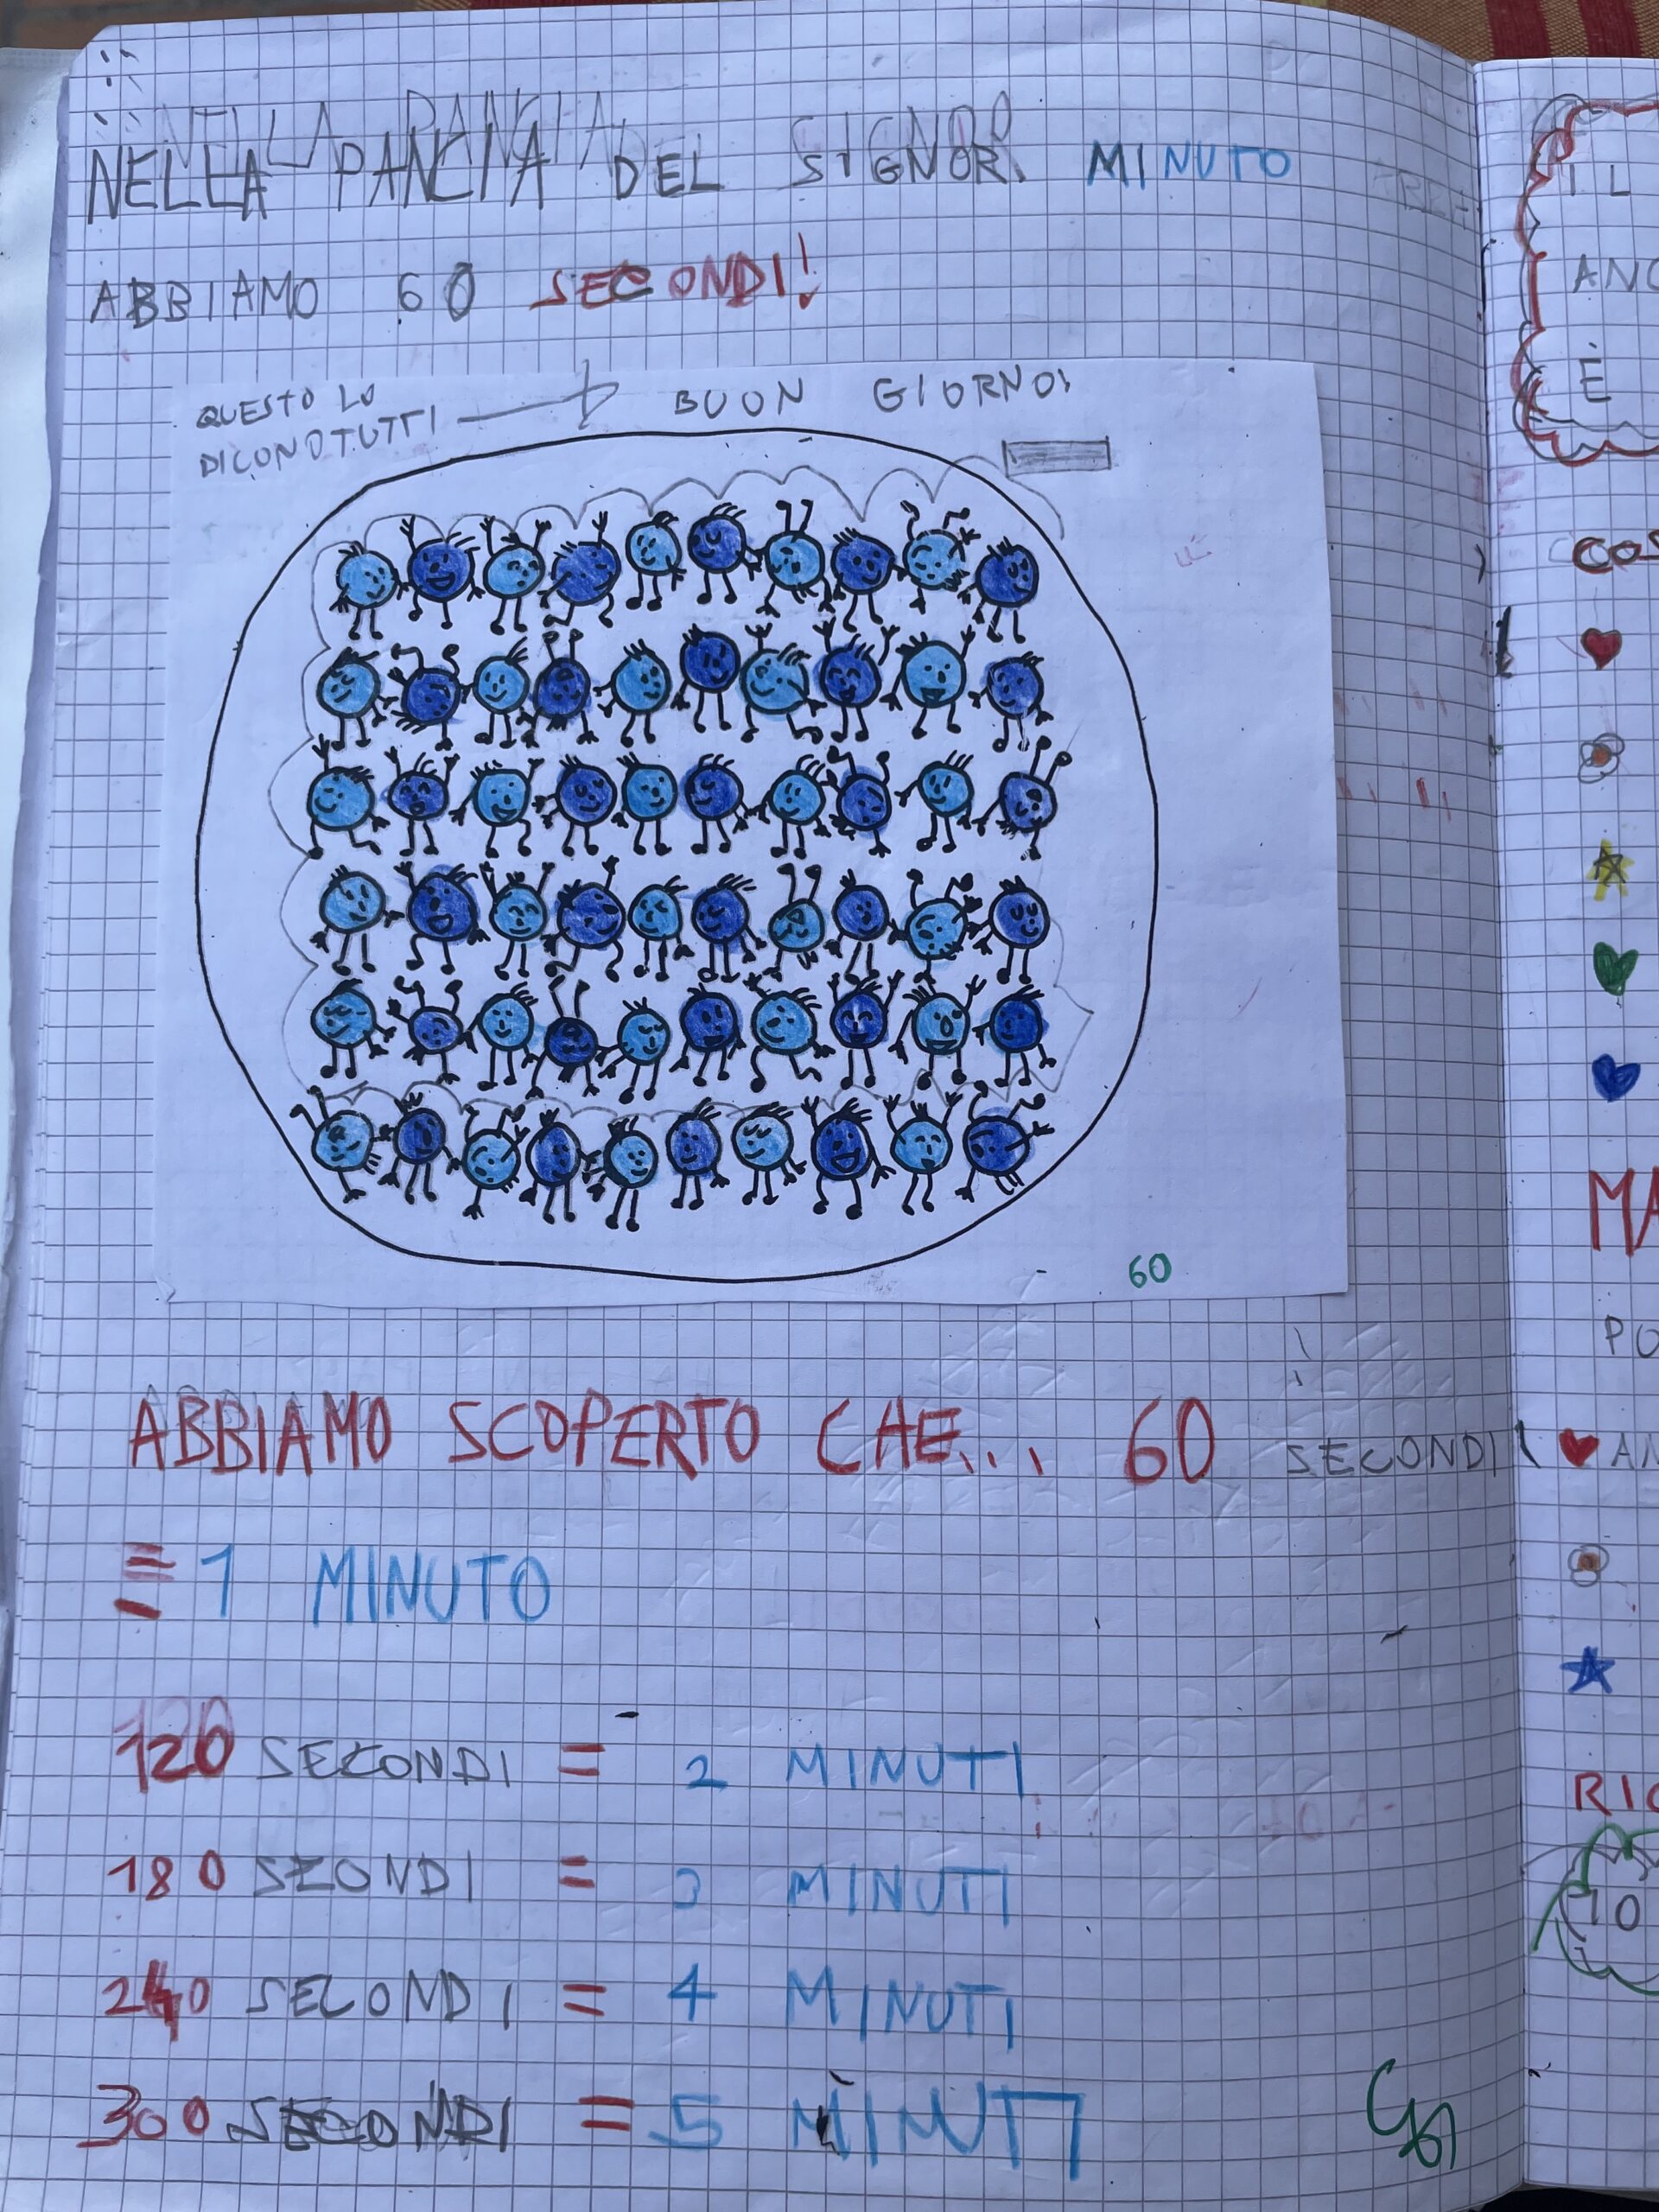 NELLA PANCIA DEL SIGNOR. MINUTO
ABBIAMO 60 SECONDI!
QUESTO LO
DICONO TUTTI
BUON GIORNO!
60
ABBIAMO SCOPERTO CHE... 60 SECONDI
= 1 MINUTO
120 SECONDI = 2 MINUTI
180 SECONDI = 3 MINUTI
240 SECONDI = 4 MINUTI
300 SECONDI = 5 MINUTI
IL
ANC
È
COS
MA
PO
AN
RIC
10